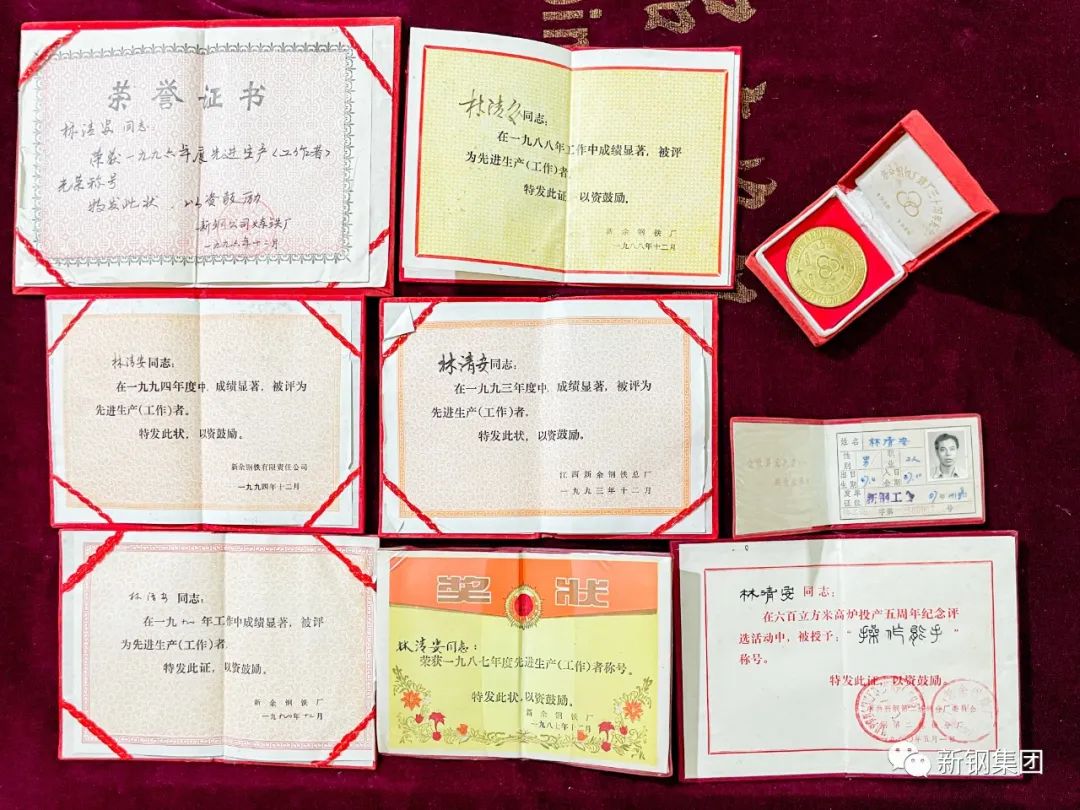 荣誉证书
林清安 同志:
荣获一九九六年度先进生产(工作者)
光荣称号
特发此状,以资鼓励
新钢公司炼铁厂
一九九六年十二月
林清安同志:
在一九八八年工作中成绩显著,被评
为先进生产(工作)者
特发此证,以资鼓励。
新余钢铁厂
一九八八年十二月
林清安同志:
在一九九四年度中,成绩显著,被评为
先进生产(工作)者。
特发此状,以资鼓励。
新余钢铁有限责任公司
一九九四年十二月
林清安同志:
在一九九三年度中,成绩显著,被评为
先进生产(工作)者。
特发此状,以资鼓励。
江西新余钢铁总厂
一九九三年十二月
姓名 林清安
性别 男 职业 工人
出生 日期
入会 日期
发证 单位 新钢工
字第 号
林清安 同志:
年工作中成绩显著,被评
为先进生产(工作)者
特发此证,以资鼓励。
新余钢铁厂
奖状
林清安同志:
荣获一九八七年度先进生产(工作)者称号。
特发此状,以资鼓励。
新余钢铁厂
一九八七年十二月
林清安 同志:
在六百立方米高炉投产五周年纪念评
选活动中,被授予:“操作能手”
称号。
特发此证,以资鼓励。
年五月一日
新钢集团